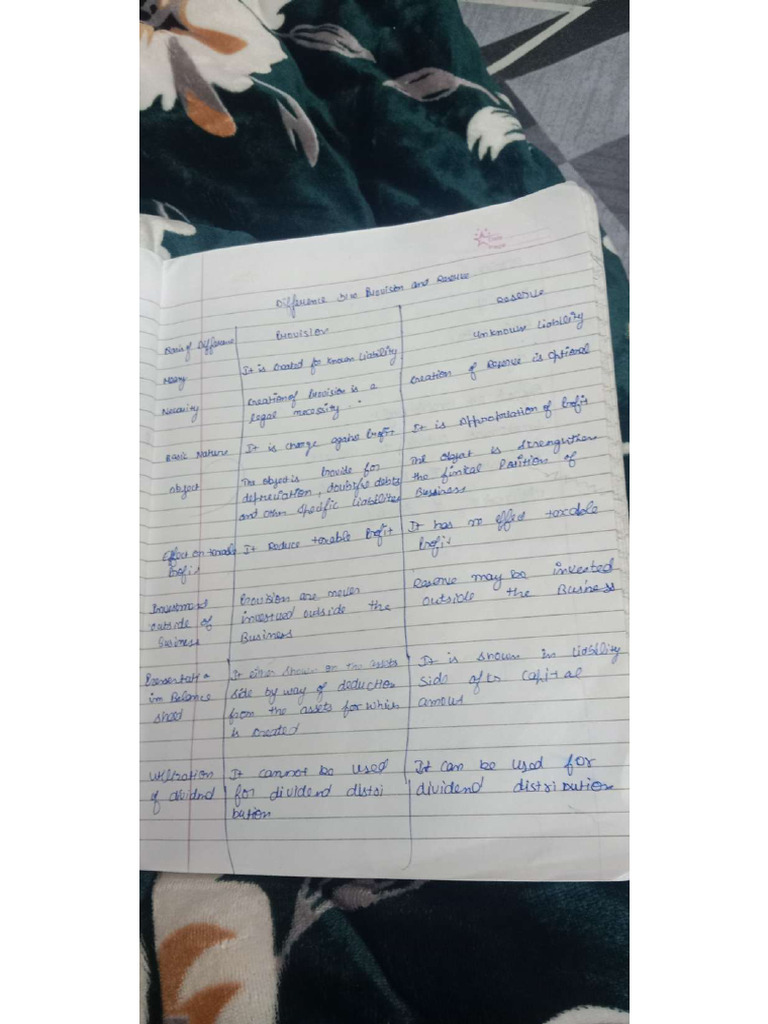 Difference b/w Provision and Reserve
Basis of Difference Provision Reserve
It is created for known liability unknown liability
Necessity Creation of Provision is a Creation of Reserve is Optional
legal necessity.
Basic Nature It is charge against Profit It is Appropriation of Profit
Object The object is Provide for The Object is strengthen
depreciation, doubtful debts the finical Position of
and other specific liabilities Business
Effect on taxable It Reduce taxable Profit It has no effect taxable
Profit Profit
Investment Provision are never Reserve may be invested
outside of invested outside the outside the Business
Business Business
Presentation It either shown on the assets It is shown in liability
in Balance side by way of deduction side after capital
sheet from the assets for which amout
is created
utilization It cannot be used It can be used for
of dividend for dividend distri dividend distribution
bution